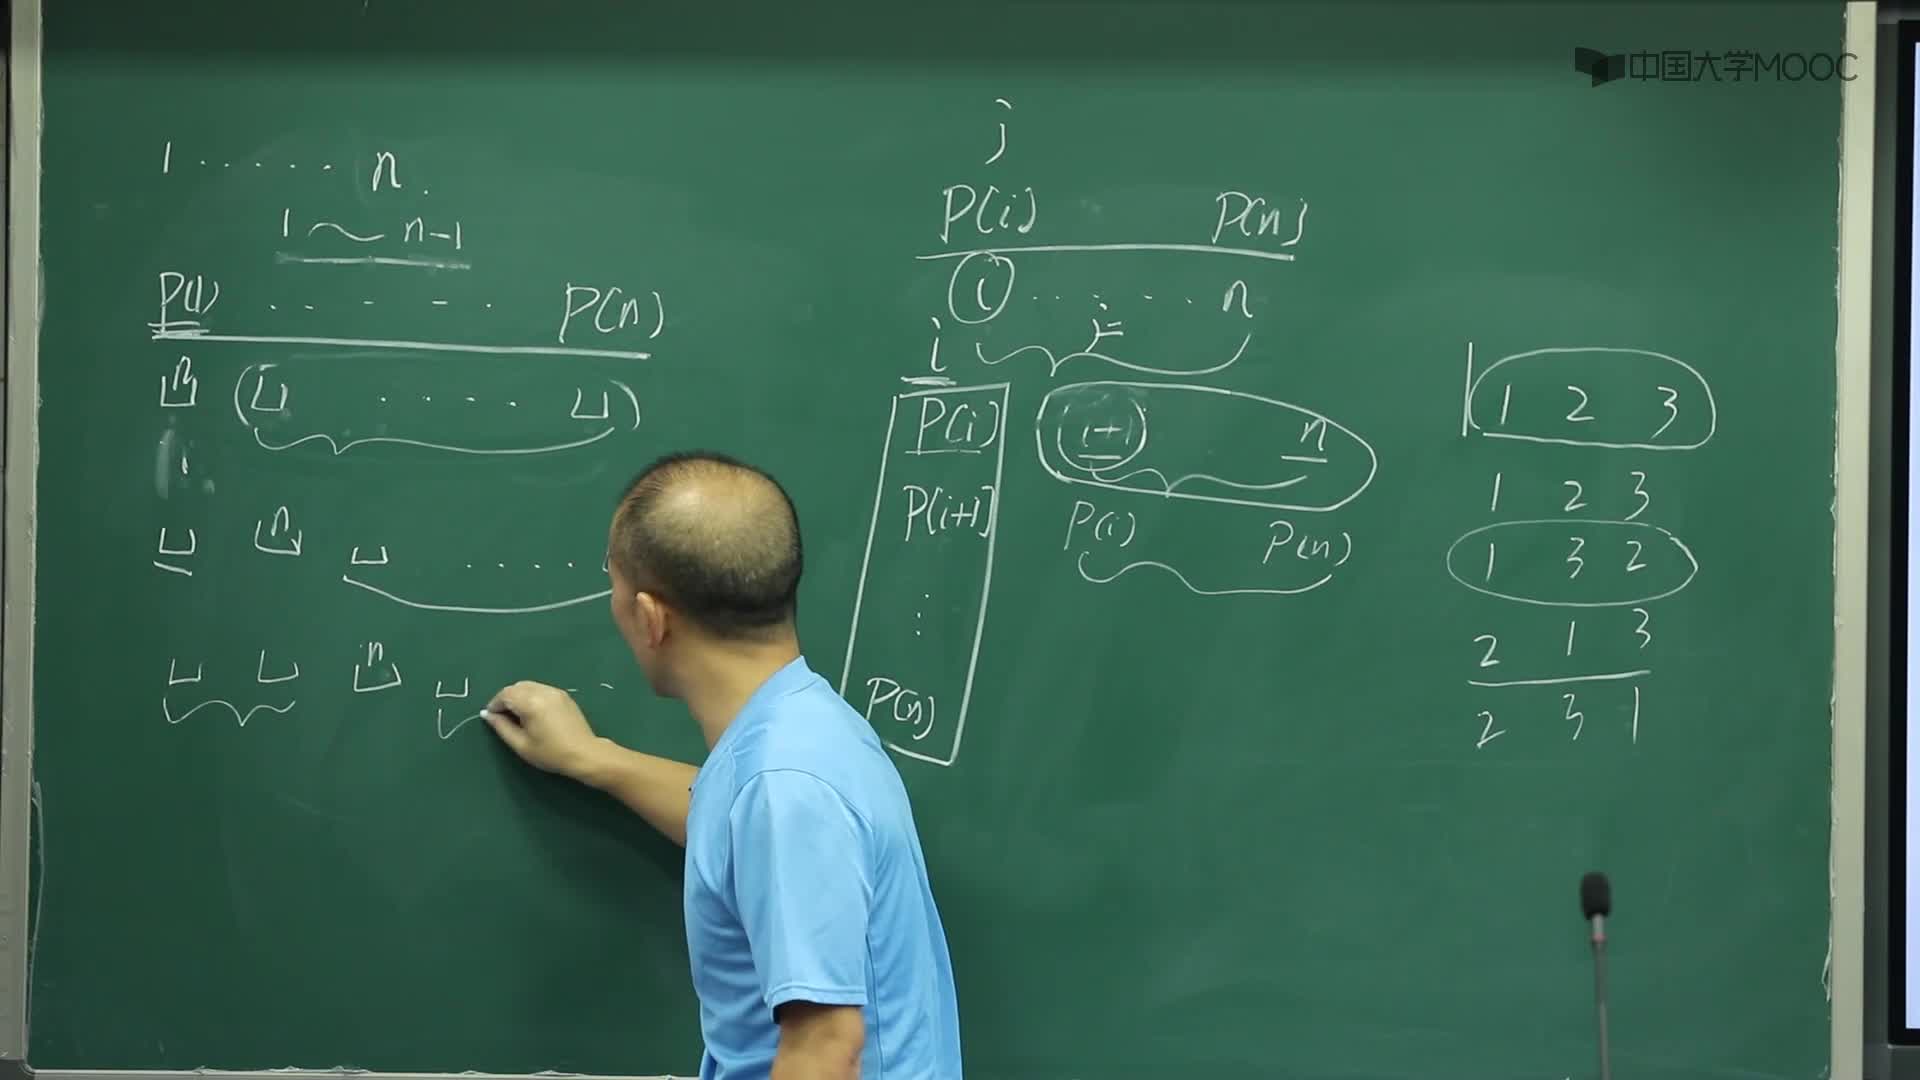 中国大学MOOC
1 ..... n.
1 ~ n-1
P(1) ..... P(n)
n ( .... )
n ....
n
j
P(i) P(n)
i ...... n
j=
i
P(i)
P[i+1]
⋮
P(n)
i+1 n
P(i) P(n)
1 2 3
1 2 3
1 3 2
2 1 3
2 3 1